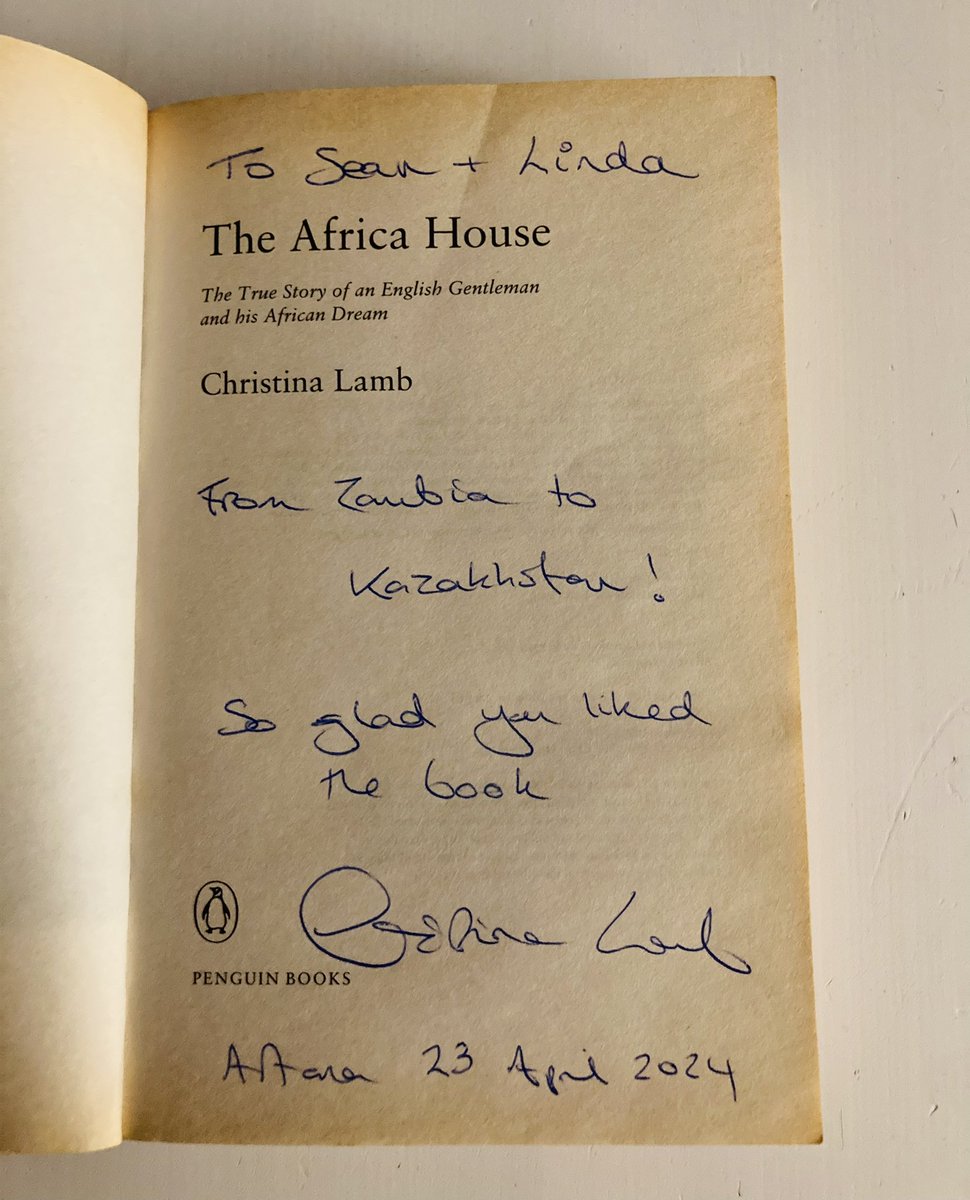 To Sean + Linda
The Africa House
The True Story of an English Gentleman
and his African Dream
Christina Lamb
From Zambia to
Kazakhstan!
So glad you liked
the book
Christina Lamb
PENGUIN BOOKS
Astana 23 April 2024